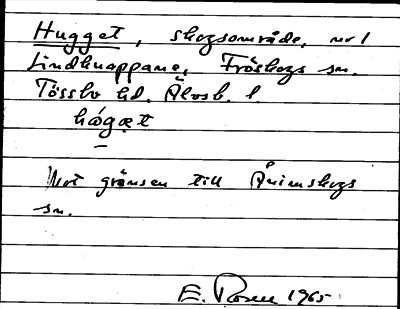 Hugget, skogsområde, nv l
Lindknapparne, Fröskogs sn.
Tössbo hd. Älvsb. l.
hó̷gæt
Mot gränsen till Ånimskogs
sn.
E. Rosen 1965